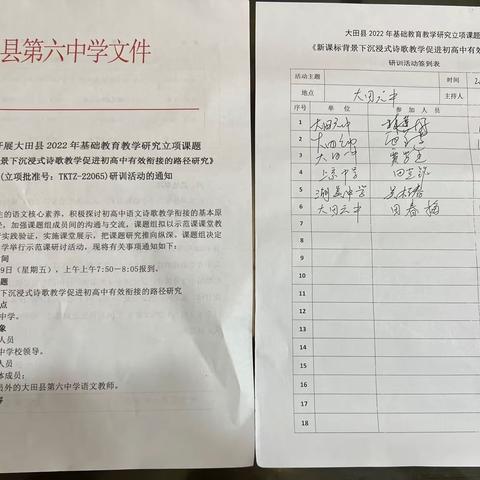 县第六中学文件
开展大田县 2022 年基础教育教学研究立项课题
景下沉浸式诗歌教学促进初高中有效衔接的路径研究》
(立项批准号：TKTZ-22065)研训活动的通知
生的语文核心素养，积极探讨初高中语文诗歌教学衔接的基本原
，加强课题组成员间的沟通与交流，课题组拟以示范课课堂教
实践验证，实施课堂展示，把课题研究推向纵深。课题组决定
学举行示范课研讨活动，现将有关事项通知如下：
时间
9日（星期五），上午上午7:50－8:05报到。
题
下沉浸式诗歌教学促进初高中有效衔接的路径研究
点
中学。
象
人员
中学校领导。
人员
体成员；
员外的大田县第六中学语文教师。
大田县 2022 年基础教育教学研究立项课题
《新课标背景下沉浸式诗歌教学促进初高中有效
研训活动签到表
活动主题
时间
地点 大田六中 主持人
序号 单 位 参 加 人 员
1 大田六中
2 大田六中
3 大田六中
4 上京中学
5 湖美中学 吴桂香
6 大田六中 田春梅
7
8
9
10
11
12
13
14
15
16
17
18